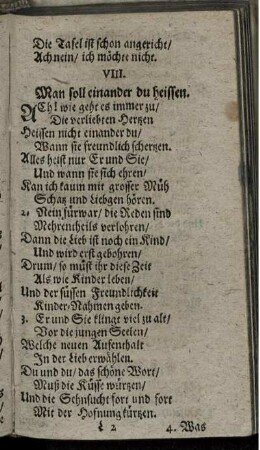 Die Tafel ist schon angericht/
Ach nein/ ich möchte nicht.
VIII.
Man soll einander du heissen.
ACh! wie geht es immer zu/
Die verliebten Hertzen
Heissen nicht einander du/
Wann sie freundlich schertzen.
Alles heist nur Er und Sie/
Und wann sie sich ehren/
Kan ich kaum mit grosser Müh
Schatz und Liebgen hören.
2. Nein fürwar/ die Reden sind
Mehrentheils verlohren/
Dann die Lieb ist noch ein Kind/
Und wird erst gebohren/
Drum/ so müst ihr diese Zeit
Als wie Kinder leben/
Und der süssen Freundlichkeit
Kinder-Nahmen geben.
3. Er und Sie klingt viel zu alt/
Vor die jungen Seelen/
Welche neuen Aufenthalt
In der Lieb erwählen.
Du und du/ das schöne Wort/
Muß die Küsse würtzen/
Und die Sehnsucht fort und fort
Mit der Hofnung kürtzen.
2 4. Was